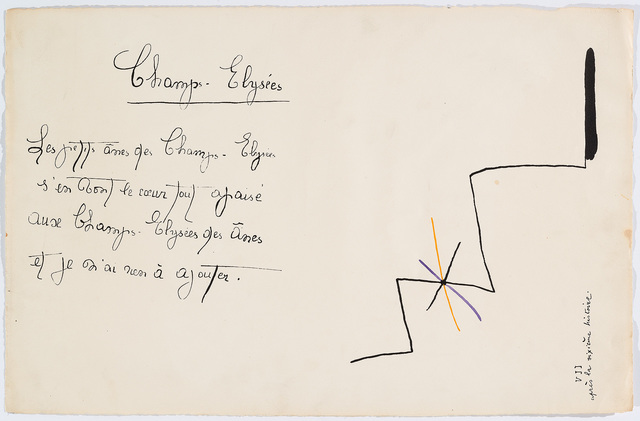 Champs-Elysées
Les petits ânes des Champs-Elysées
s'en vont le cœur tout apaisé
aux Champs-Elysées des Ânes
et je n'ai rien à ajouter.
VII
après la sixième histoire.